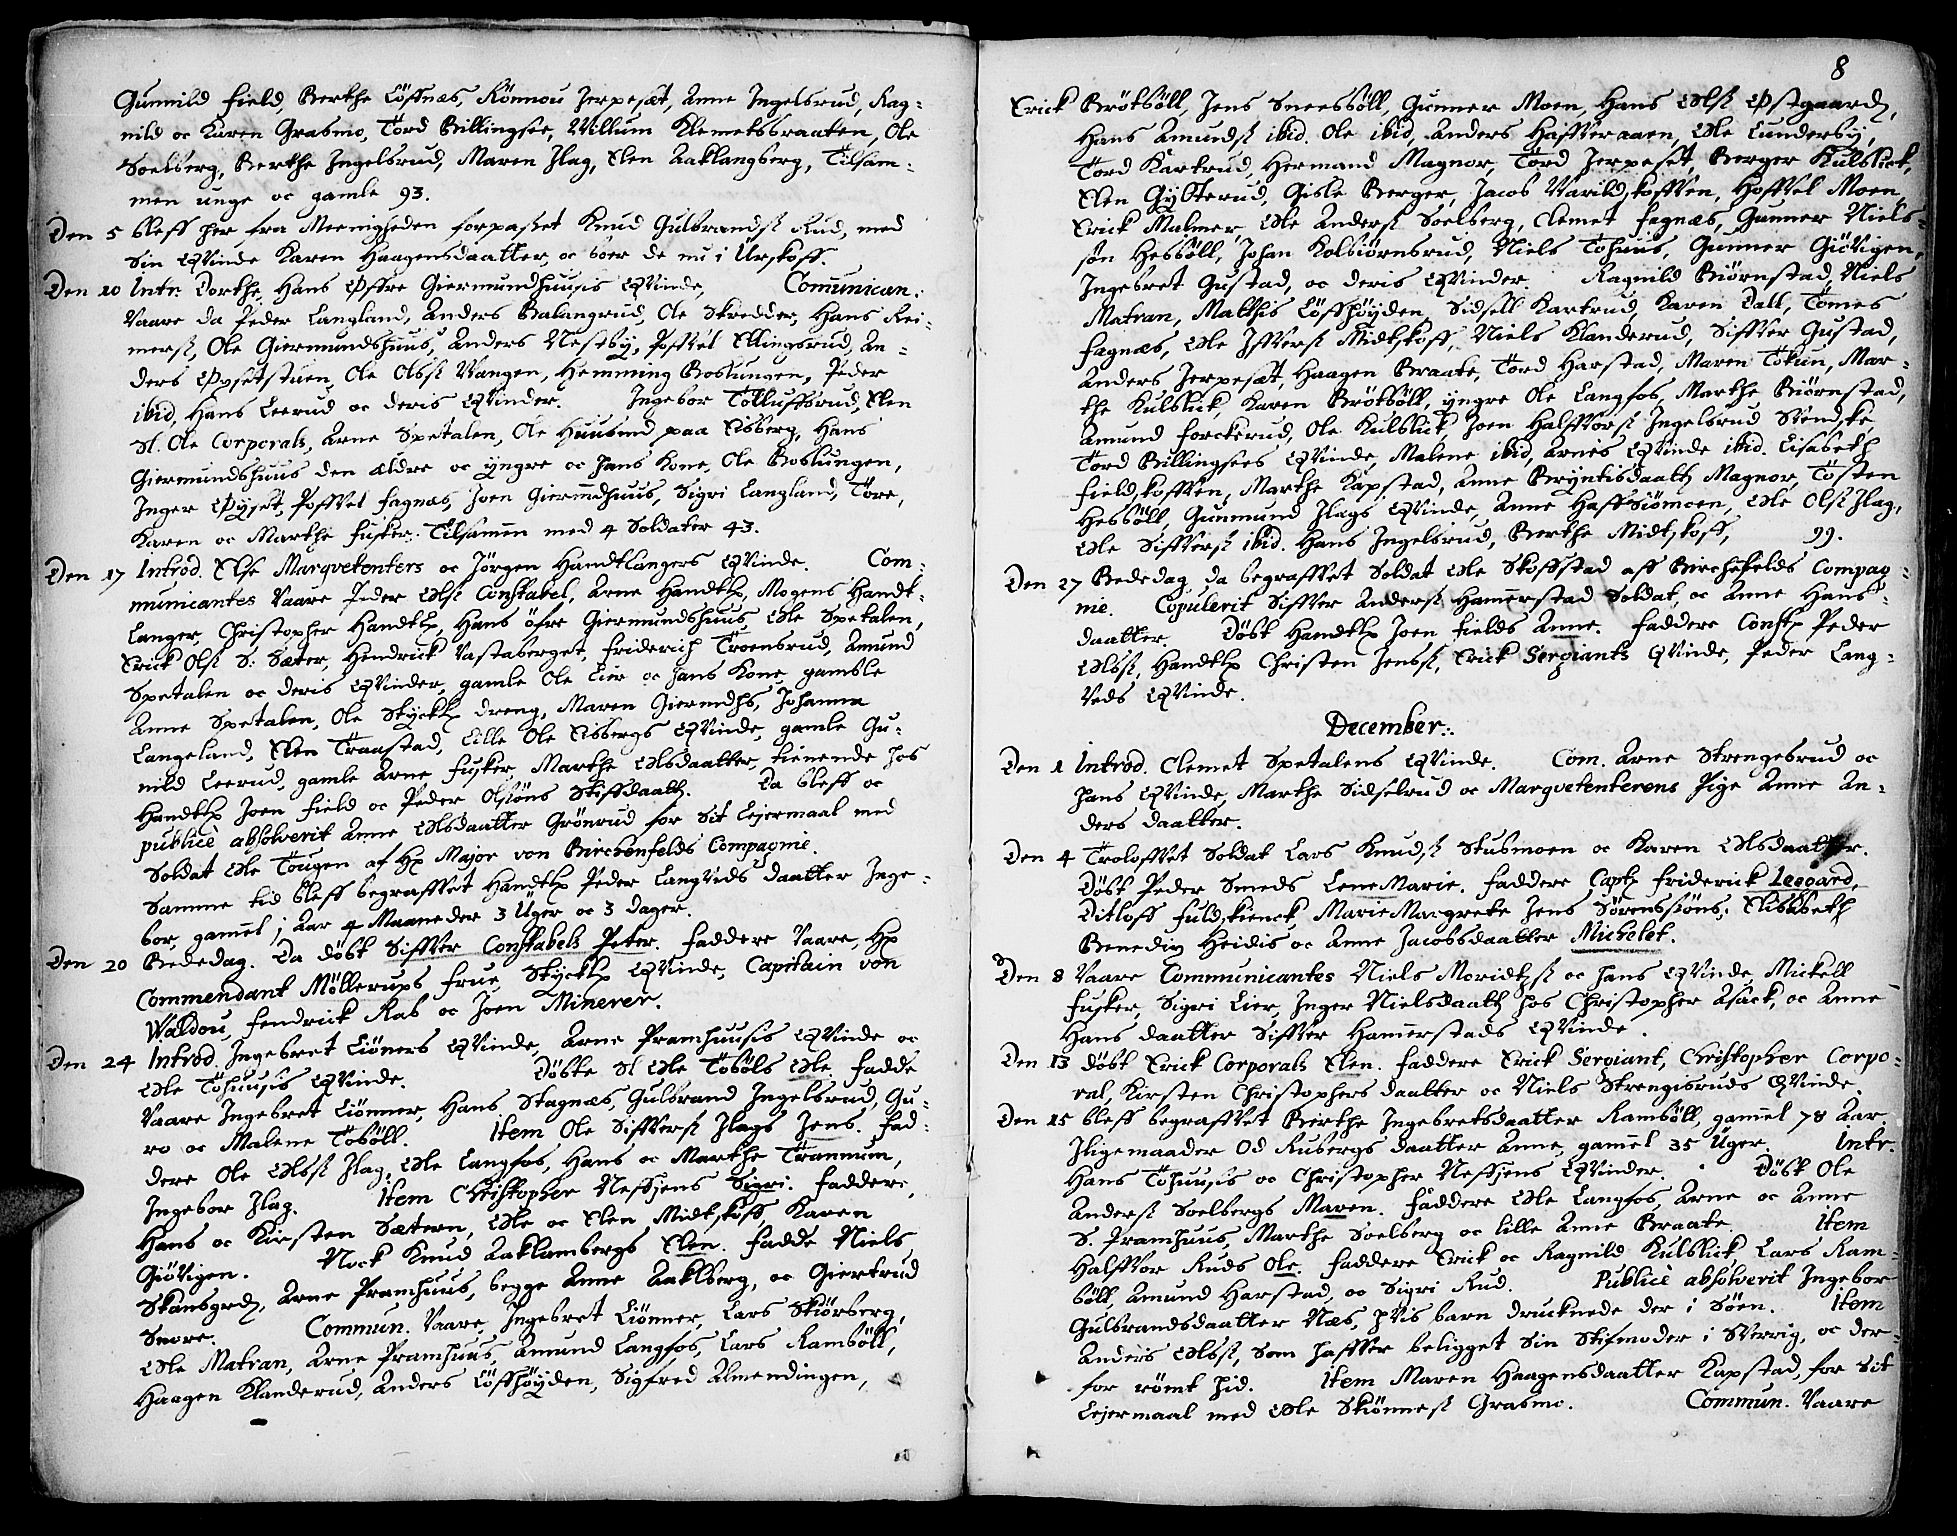 Gunnild Field, Berthe Löffnæs, Rönnou Jerpeset, Anne Ingelsrud, Rag-
nild oc Karen Grasmo, Tord Billingsee, Willum Klemetsbraaten, Ole
Soelberg, Berthe Ingelsrud, Maren Ilag, Elen Aaklangberg, Tilsam-
men unge oc gamle 93.
Den 5 bleff her fra Meenigheden forpasset Knud Gulbrands: Rud, med
Sin Qvinde Karen Haagensdaatter, oc boer de nu i Urskoff.
Den 10 Intr. Dorthe, Hans Øffre Giermundhuusis Qvinde, Comunican:
Vaare da Peder Langland, Anders Balangrud, Ole Skredder, Hans Rei-
mers:, Ole Giermundshuus, Anders Nesteby, Poffvel Ellingsrud, An-
ders Øysetstuen, Ole Olss: Wangen, Hemming Boslungen, Peder
ibid, Hans Leerud oc deris Qvinder. Ingebor Tolluffsrud, Elen
Sl. Ole Corporals, Arne Spetalen, Ole Huusmd paa Eisberg, Hans
Giermundshuus den ældre oc yngre oc hans Kone, Ole Boslungen,
Inger Øyset, Poffvel Fagnæs, Joen Giermdhuus, Sigri Langland, Tore,
Karen oc Marthe Fusker. Tilsamen med 4 Soldater 43.
Den 17 Introd. Else Marqvetenters oc Jörgen Handtlangers Qvinde. Com-
municantes Vaare Peder Ols: Constabel, Arne Handtl:, Mogens Handt-
langer, Christopher Handtl:, Hans öfre Giermundshuus, Ole Spetalen,
Erick Ols: S: Sæter, Hendrick Vastaberget, Friderich Troensrud, Amund
Spetalen oc deris Qvinder, gamle Ole Eier oc hans Kone, gamble
Anne Spetalen, Ole Styckl: dreng, Maren Giermdhs, Johanna
Langeland, Elen Traastad, Lille Ole Eisbergs Qvinde, gamle Gu-
nild Leerud, gamle Arne Fusker, Marthe Olsdaatter, tienende hos
Handtl: Joen Field oc Peder Olsöns Stiffdaatt:. Da bleff oc
publicè absolverit Anne Olsdaatter Grönrud for Sit Lejermaal med
Soldat Ole Tougen af H: Major von Birckenfelds Compagnie.
Samme tid bleff begraffvet Handtl: Peder Langvids daatter Inge-
bor, gamel 1 Aar 4 Maaneder 3 Uger oc 3 dager.
Den 20 Bededag. Da döbt Siffver Constabels Peter. Faddere Vaare, H:
Commendant Möllerups Frue, Styckl: Qvinde, Capitain von
Waldou, Fendrick Rab oc Joen Minerer.
Den 24 Introd. Ingebret Liöners Qvinde, Arne Pramhuusis Qvinde oc
Ole Töhuusis Qvinde. Döbte Sl Ole Töböls Ole. Fadde
Vaare Ingebret Liönner, Hans Stagnæs, Gulbrand Ingelsrud, Gu-
ro oc Malene Töböll. Item Ole Siffvers: Ilags Jens. Fad-
dere Ole Olss: Ilag, Ole Langfos, Hans oc Marthe Trannum,
Ingebor Ilag. Item Christopher Neffsens Sigri. Faddere,
Hans oc Kirsten Sætern, Ole oc Elen Midtskoff, Karen
Giövigen. Nock Knud Aaklambergs Elen. Fadde Niels
Skansgrd, Arne Pramhuus, begge Anne Aaklberg, oc Giertrud
Snore. Commun. Vaare, Ingebret Liönner, Lars Skiörberg,
Ole Matran, Arne Pramhuus, Amund Langfos, Lars Ramböll,
Haagen Klanderud, Anders Löffhöyden, Sigfred Almendingen,
8
Erick Brötböll, Jens Sneesböll, Gunner Moen, Hans Ols: Østgaard,
Hans Amunds: ibid. Ole ibid, Anders Haffveraaen, Ole Lundersby,
Tord Kartrud, Hermand Magnor, Tord Jerpeset, Berger Kulblick,
Elen Gylterud, Gisle Berger, Jacob Varildskoffven, Hoffvel Moen,
Erick Malmer, Ole Anders: Soelberg, Clemet Fagnæs, Gunner Niels-
sön Hesböll, Johan Kolbiörnsrud, Niels Töhuus, Gunner Giövigen,
Ingebret Gustad, oc deris Qvinder. Ragnild Biörnstad, Niels
Matran, Matthis Löffhöyden, Sidsell Kartrud, Karen Dall, Tömes
Fagnæs, Ole Iffvers: Midtskoff, Niels Klanderud, Siffver Gustad,
Anders Jerpesæt, Haagen Braate, Tord Harstad, Maren Tökün, Mar-
the Kulblick, Karen Brötböll, yngre Ole Langfos, Marthe Biörnstad,
Amund Forckerud, Ole Kulblick, Joen Halffvors: Ingelsrud Svendske
Tord Billingsees Qvinde, Malene ibid, Arnes Qvinde ibid. Lisabeth
Fieldskoffven, Marthe Kapstad, Anne Bryntisdaatt: Magnor, Tosten
Hesböll, Gunmund Ilags Qvinde, Anne Haffsiömoen, Ole Ols: Ilag,
Ole Siffvers: ibid. Hans Ingelsrud, Berthe Midtskoff, 99.
Den 27 Bededag, da begraffvet Soldat Ole Skoffstad aff Birchefelds Compag-
nie. Copulerit Siffver Anders: Hamerstad Soldat, oc Anne Hans-
daatter. Döbt Handtl: Joen Fields Anne. Faddere Const: Peder
Olss:, Handtl: Christen Jenss:, Erick Sergiants Qvinde, Peder Lang-
veds Qvinde.
December.
Den 1 Introd. Clemet Spetalens Qvinde. Com. Arne Strengebrud oc
hans Qvinde, Marthe Sidselrud oc Marqvetenterens Pige Anne An-
ders daatter.
Den 4 Troloffvet Soldat Lars Knuds: Stubmoen oc Karen Olsdaatter.
Döbt Peder Smeds Lene Marie. Faddere Capt: Friderick Leegard,
Ditloff Fuldskienck, Marie Margrete Jens Sörenssöns, Elisabeth
Benedix Heidis oc Anne Jacobsdaatter Michelet.
Den 8 Vaare Communicantes Niels Moridtz: oc hans Qvinde, Mickell
Fusker, Sigri Eier, Inger Nielsdaatt: hos Christopher Asack, oc Anne
Hans daatter Siffver Hamerstads Qvinde.
Den 13 döbt Erick Corporals Elen. Faddere Erick Sergiant, Christopher Corpo-
ral, Kirsten Christophers daatter oc Niels Strengisruds Qvinde.
Den 15 bleff begraffvet Berthe Ingebretsdaatter Ramböll, gamel 78 Aar
Iligemaader Od Rusbergs daatter Anne, gamel 35 Uger. Intr.
Hans Töhuusis oc Christopher Neffsens Qvinder. Döbt Ole
Anders: Soelbergs Maren. Faddere Ole Langfos, Arne oc Anne
S. Pramhuus, Marthe Soelberg oc lille Anne Braate. Item
Halffvor Ruds Ole. Faddere Erick oc Ragnild Kulblick, Lars Ram-
böll, Amund Harstad, oc Sigri Rud. Publicè absolverit Ingebor
Gulbrandsdaatter Næs, hvis barn drucknede der i Söen. Item
Anders Olss:, Som haffver beligget Sin Stifmoder i Sverrig, oc der-
for römt hid. Item Maren Haagensdaatter Kapstad, for Sit
Lejermaal med Ole Skiönnes: Grasmo. Commun. Vaare